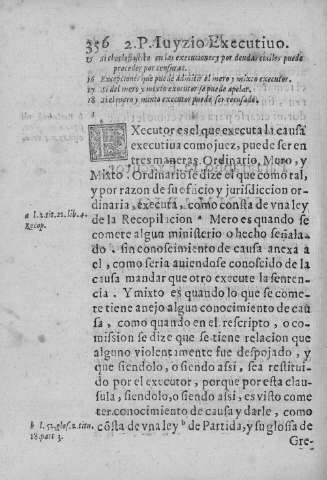 356 2. P. Iuyzio Executiuo.
15 Si el eclesiastico en las execuciones y por deudas ciuiles puede
proceder por censuras.
16 Excepciones que puede admitir el mero y mixto executor.
17 Si del mero y mixto executor se puede apelar.
18 Si el mero y mixto executor puede ser recusado.
EXecutor es el que executa la causa
executiua como juez, puede ser en
tres maneras, Ordinario, Mero, y
Mixto. Ordinario se dize el que como tal,
y por razon de su oficio y jurisdiccion or-
dinaria, executa, como cõsta de vna ley
de la Recopilacion a Mero es quando se
comete algun ministerio o hecho señala-
do, sin conocimiento de causa anexa à
el, como seria auiendose conoscido de la
causa mandar que otro execute la senten-
cia. Y mixto es quando lo que se come-
te tiene anejo algun conocimiento de cau
sa, como quando en el rescripto, o co-
mission se dize que se tiene relacion que
alguno violentamente fue despojado, y
que siendolo, o siendo assi, sea restitui-
do por el executor, porque por esta clau-
sula, siendolo, o siendo assi, es visto come
ter conocimiento de causa y darle, como
cõsta de vna ley b de Partida, y su glossa de
Gre-
a l. 2. tit. 21. lib. 4.
Recop.
b l. 52. glos. 2. titu.
18. part 3.